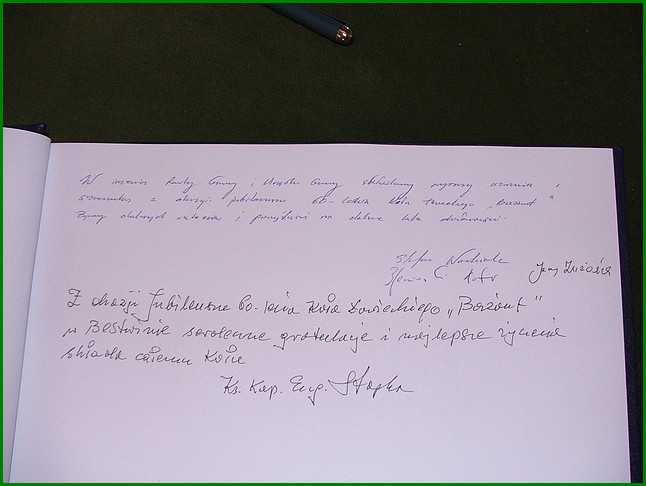 W imieniu Rady Gminy i Urzędu Gminy składamy wyrazy uznania i
szacunku z okazji jubileuszu 60-lecia Koła Łowieckiego „Bażant"
Życzymy dalszych sukcesów i pomyślności na dalsze lata działalności.
Stefan Wodniak
Jerzy
Z okazji Jubileuszu 60-lecia Koła Łowieckiego „Bażant"
w Bestwinie serdeczne gratulacje i najlepsze życzenia
składa całemu Kołu
Ks. Kap. Eug. Stopka